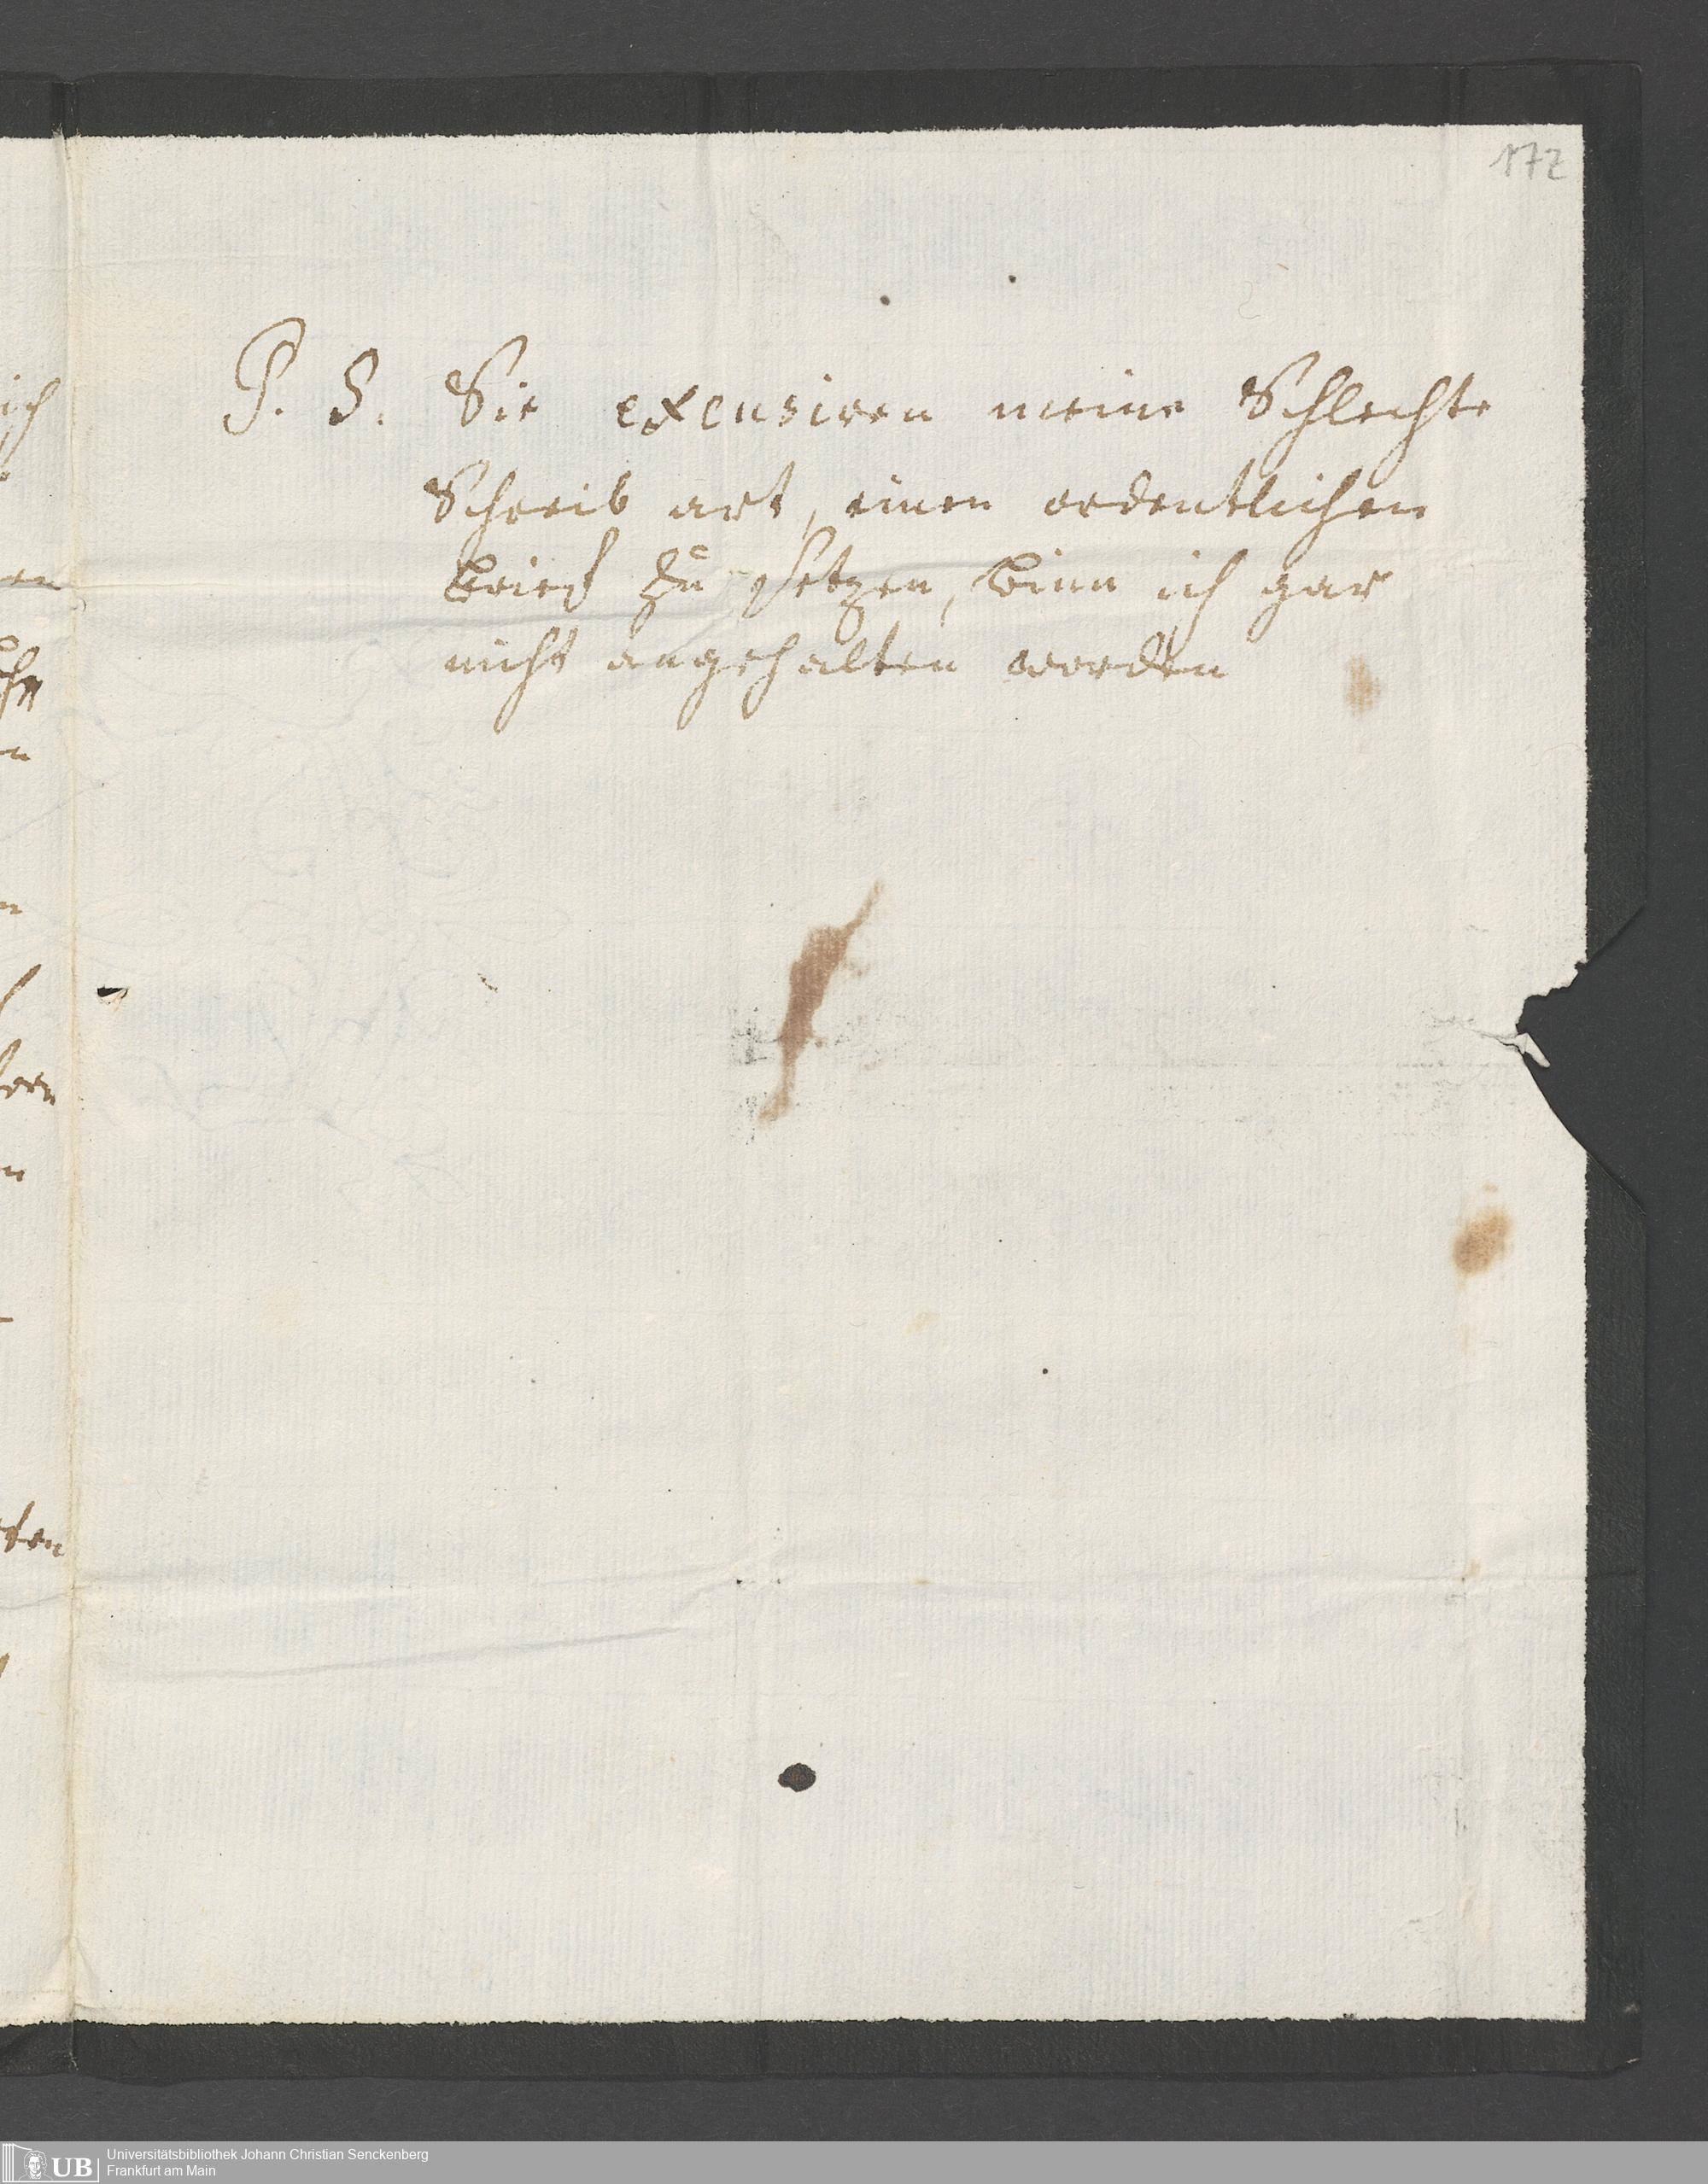 172
P. S. Sie excusiren meine Schlechte
Schreib art, einen ordentlichen
brief zu setzen, binn ich gar
nicht angehalten worden
ich
en
n
n
n
ten
UB Universitätsbibliothek Johann Christian Senckenberg
Frankfurt am Main